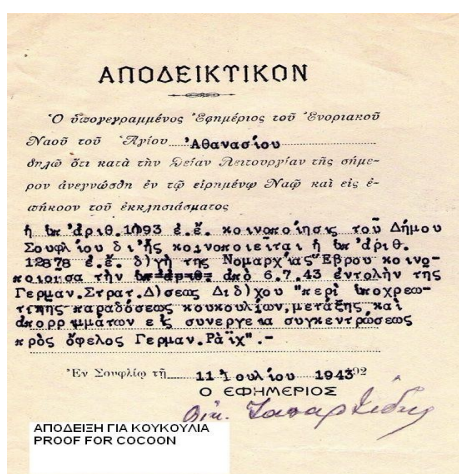 ΑΠΟΔΕΙΚΤΙΚΟΝ
Ὁ ὑπογεγραμμένος Ἐφημέριος τοῦ Ἐνοριακοῦ
Ναοῦ τοῦ Ἁγίου Ἀθανασίου
δηλῶ ὅτι κατὰ τὴν Θείαν Λειτουργίαν τῆς σήμε-
ρον ἀνεγνώσθη ἐν τῷ εἰρημένῳ Ναῷ καὶ εἰς ἐ-
πήκοον τοῦ ἐκκλησιάσματος
ἡ ὑπ' ἀριθ. 1093 ἐ.ἔ. κοινοποίησις τοῦ Δήμου
Σουφλίου δι' ἧς κοινοποιεῖται ἡ ὑπ' ἀριθ.
12878 ἐ.ἔ. δ)γὴ της Νομαρχίας Ἔβρου κοινο-
ποιοισα τὴν ἀπὸ 6.7.43 ἐντολὴν της
Γερμαν.Στρατ.Δ)σεως Διδ)χου "περὶ ὑποχρεω-
τικης παραδόσεως κουκουλίων,μετάξης καὶ
ἀπορριμμάτων εἰς συνεργεια συγκεντρώσεως
πρὸς ὄφελος Γερμαν.Ράϊχ".-
Ἐν Σουφλίῳ τῇ 11 Ἰουλίου 1943 192
Ο ΕΦΗΜΕΡΙΟΣ
ΑΠΟΔΕΙΞΗ ΓΙΑ ΚΟΥΚΟΥΛΙΑ
PROOF FOR COCOON